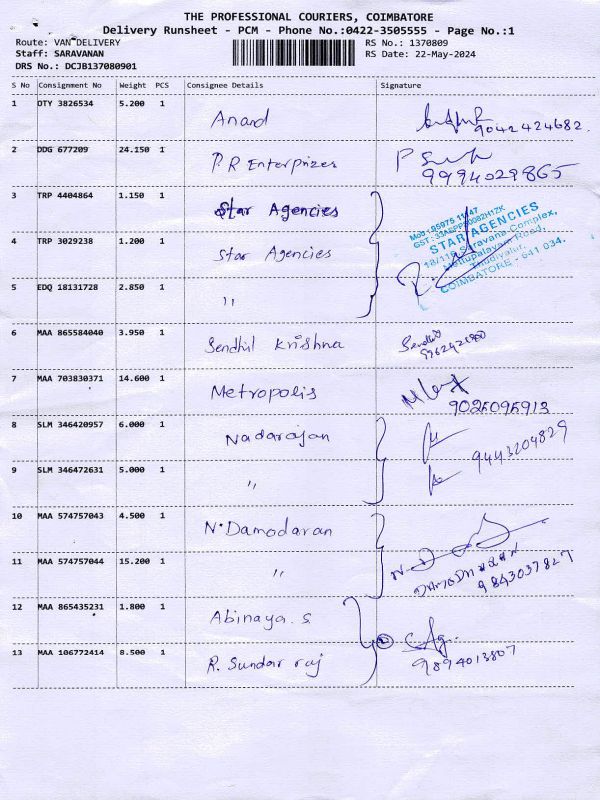 THE PROFESSIONAL COURIERS, COIMBATORE
Delivery Runsheet - PCM - Phone No.:0422-3505555 - Page No.:1
Route: VAN DELIVERY
RS No.: 1370809
Staff: SARAVANAN
RS Date: 22-May-2024
DRS No.: DCJB137080901
S No Consignment No Weight PCS Consignee Details Signature
1 OTY 3826534 5.200 1 Anand 9042424682.
2 DDG 677209 24.150 1 P.R Enterprizes 9994029865
3 TRP 4404864 1.150 1 Star Agencies
4 TRP 3029238 1.200 1 Star Agencies
STAR AGENCIES
18/119 Saravana Complex,
Mettupalayam Road,
Thudiyalur,
COIMBATORE - 641 034.
5 EDQ 18131728 2.850 1 "
6 MAA 865584040 3.950 1 Sendhil Krishna Sendhil
7 MAA 703830371 14.600 1 Metropolis 9025095913
8 SLM 346420957 6.000 1 Nadarajan 9443204829
9 SLM 346472631 5.000 1 "
10 MAA 574757043 4.500 1 N. Damodaran
11 MAA 574757044 15.200 1 " 9843037827
12 MAA 865435231 1.800 1 Abinaya. S
13 MAA 106772414 8.500 1 R. Sundar raj 9894013807